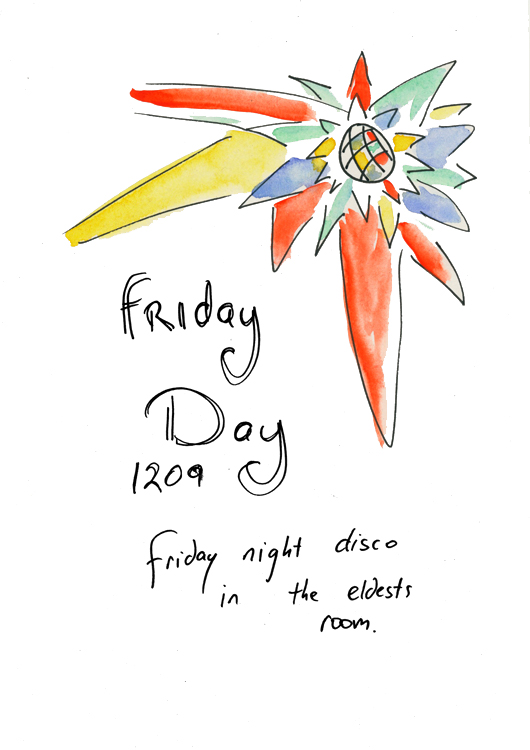 Friday
Day
1209
friday night disco
in the eldests
room.